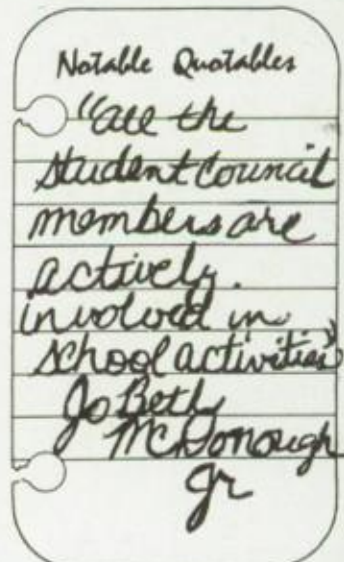 Notable Quotables
"all the
student council
members are
actively.
involved in
school activities"
Jo Beth
McDonough
Jr